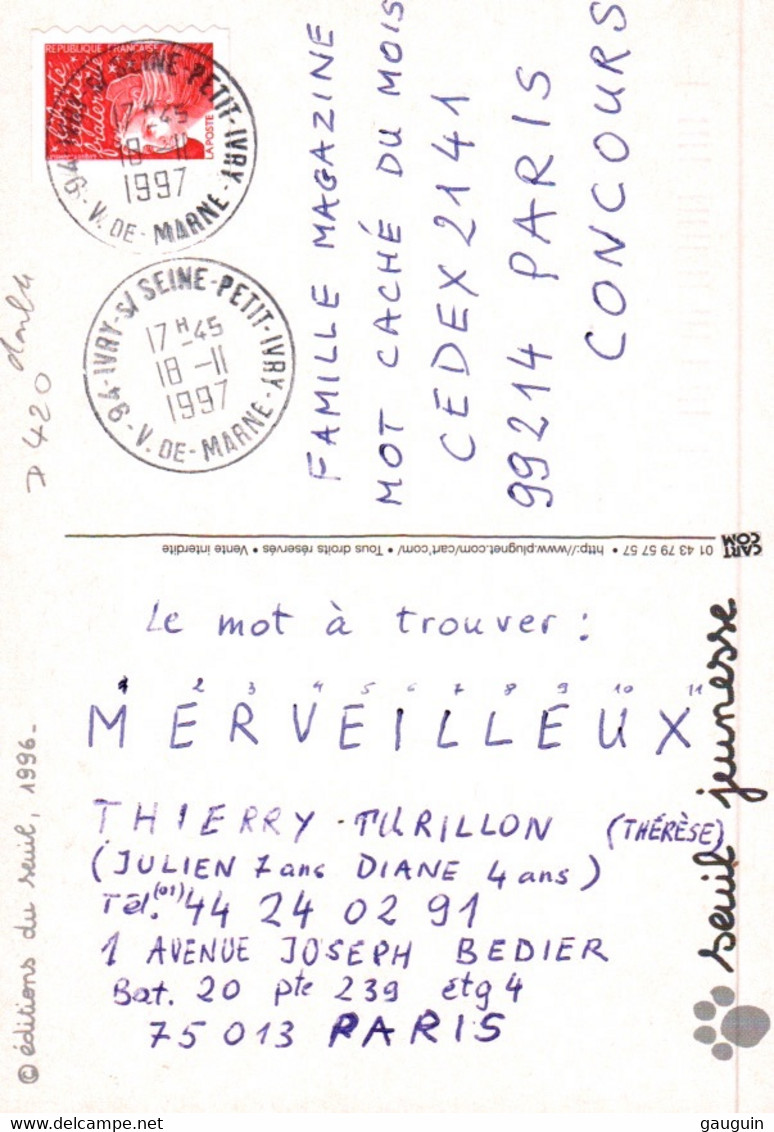 REPUBLIQUE FRANÇAISE
liberté
fraternité
LA POSTE
S/ SEINE-PETIT-IVRY
17 H -45
18 -11
1997
94- V. DE-MARNE-
94-IVRY-S/ SEINE-PETIT-IVRY-
17 H -45
18 -11
1997
V. DE-MARNE-
420
FAMILLE MAGAZINE
MOT CACHÉ DU MOIS
CEDEX 2141
99214 PARIS
CONCOURS
CART
COM
01 43 79 57 57 • http://www.plugnet.com/cart'com/ • Tous droits réservés • Vente interdite
Le mot à trouver :
1 2 3 4 5 6 7 8 9 10 11
MERVEILLEUX
THIERRY - TURILLON (THÉRÈSE)
(JULIEN 7 ans DIANE 4 ans)
Tél. (01) 44 24 02 91
1 AVENUE JOSEPH BEDIER
Bat. 20 pte 239 étg 4
75013 PARIS
seuil jeunesse
© éditions du seuil, 1996-
gauguin